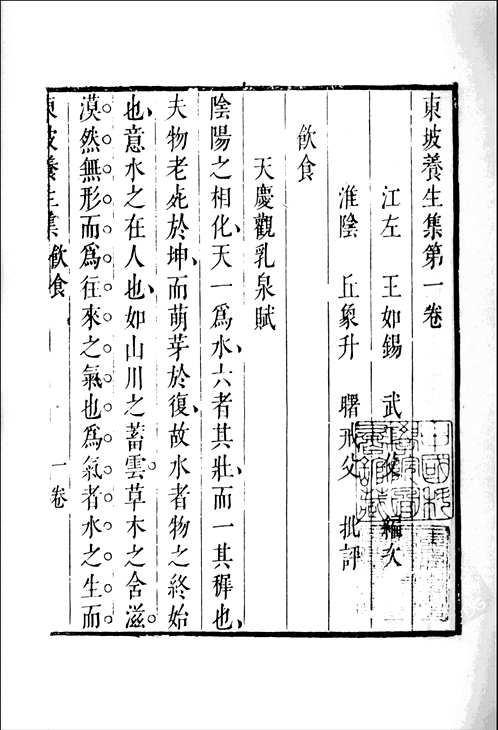 東坡養生集第一卷
江左 王如錫 武 編次
淮陰 丘象升 曙戒父 批評
飲食
天慶觀乳泉賦
陰陽之相化、天一爲水、六者其壯、而一其穉也、
夫物老死於坤、而萌芽於復、故水者物之終始
也、意水之在人也、如山川之蓄雲。草木之含滋。
漠然無形而爲往來之氣也。爲氣者水之生。而
東坡養生集 飲食 一卷